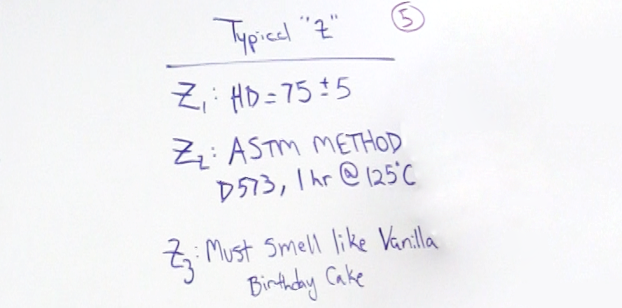 Typical "Z"
5
Z1: HD=75±5
Z2: ASTM METHOD
D573, 1 hr @ 125°C
Z3: Must Smell like Vanilla
Birthday Cake